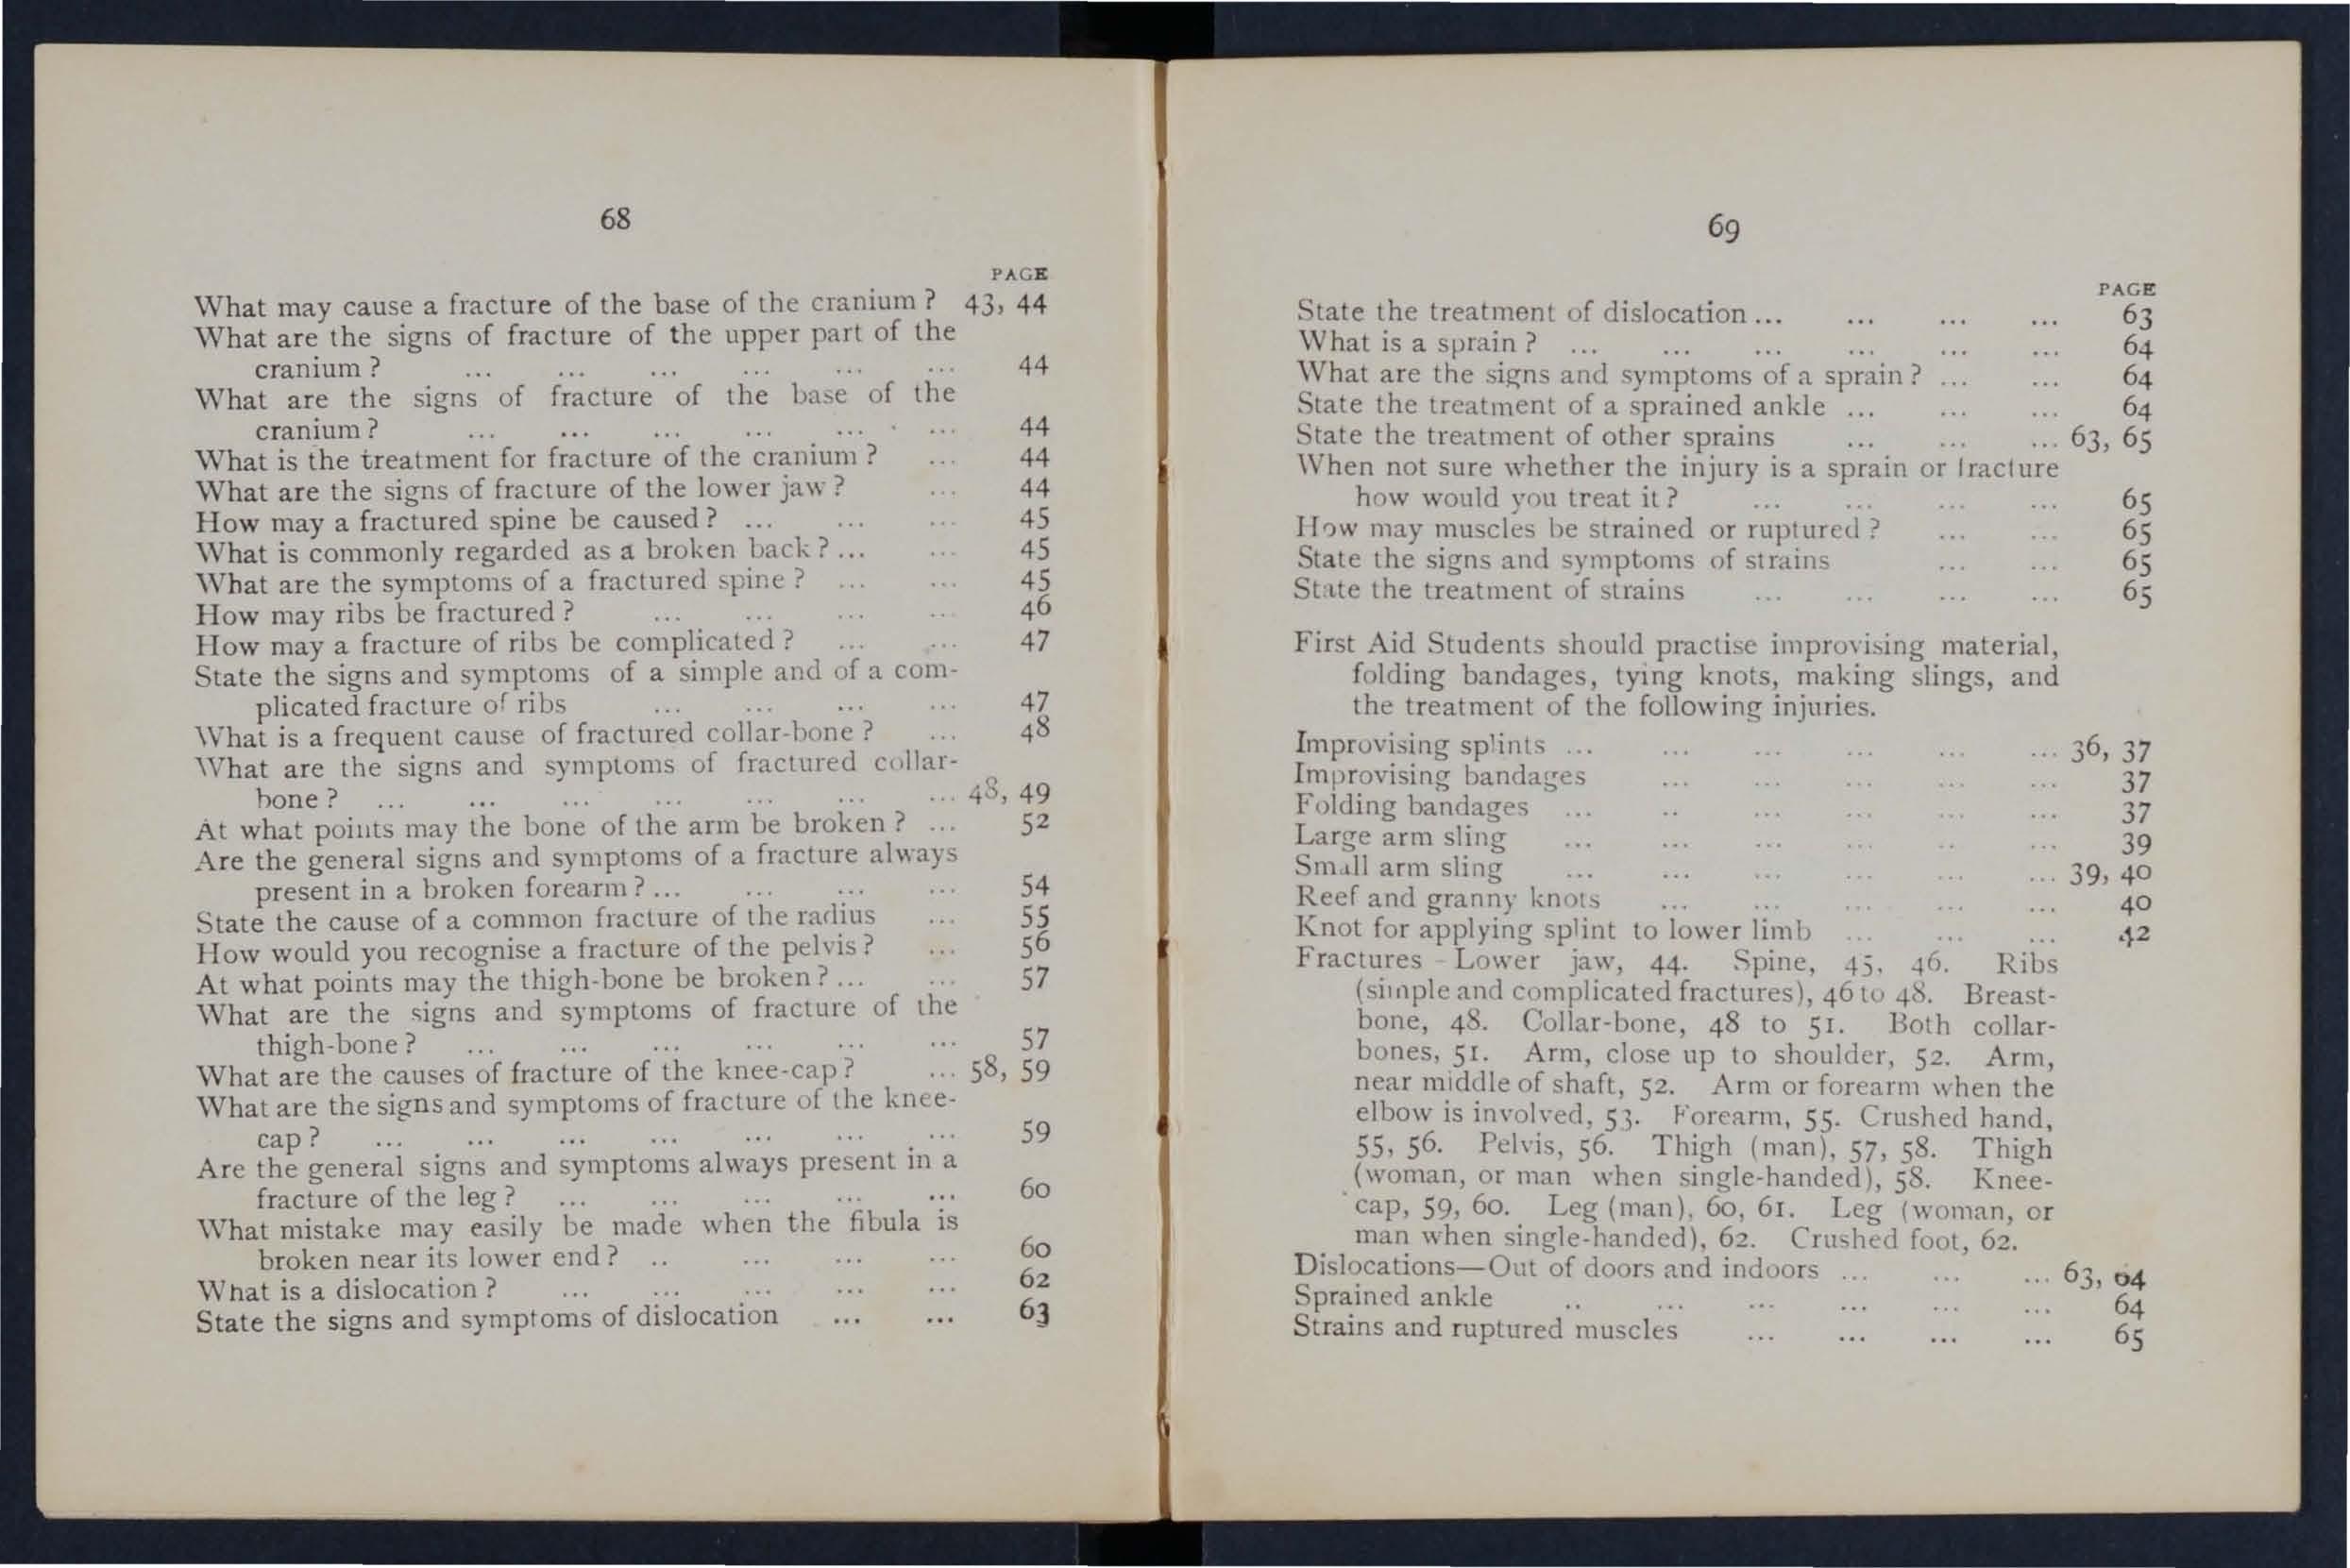 68
PAGE
What may cause a fracture of the base of the cranium ? 43, 44
What are the signs of fracture of the upper part of the
cranium ? ... ... ... ... ... ... 44
What are the signs of fracture of the base of the
cranium ? ... ... ... ... ... ... 44
What is the treatment for fracture of the cranium ? ... 44
What are the signs of fracture of the lower jaw ? ... 44
How may a fractured spine be caused ? ... ... ... 45
What is commonly regarded as a broken back ? ... ... 45
What are the symptoms of a fractured spine ? ... ... 45
How may ribs be fractured ? ... ... ... ... 46
How may a fracture of ribs be complicated ? ... ... 47
State the signs and symptoms of a simple and of a com-
plicated fracture of ribs ... ... ... ... 47
What is a frequent cause of fractured collar-bone ? ... 48
What are the signs and symptoms of fractured collar-
bone ? ... ... ... ... ... ... ... 48, 49
At what points may the bone of the arm be broken ? ... 52
Are the general signs and symptoms of a fracture always
present in a broken forearm ? ... ... ... ... 54
State the cause of a common fracture of the radius ... 55
How would you recognise a fracture of the pelvis ? ... 56
At what points may the thigh-bone be broken ? ... ... 57
What are the signs and symptoms of fracture of the
thigh-bone ? ... ... ... ... ... ... 57
What are the causes of fracture of the knee-cap ? ... 58, 59
What are the signs and symptoms of fracture of the knee-
cap ? ... ... ... ... ... ... ... 59
Are the general signs and symptoms always present in a
fracture of the leg ? ... ... ... ... ... 60
What mistake may easily be made when the fibula is
broken near its lower end ? .. ... ... ... 60
What is a dislocation ? ... ... ... ... ... 62
State the signs and symptoms of dislocation ... ... 63
69
PAGE
State the treatment of dislocation ... ... ... ... 63
What is a sprain ? ... ... ... ... ... ... 64
What are the signs and symptoms of a sprain ? ... ... 64
State the treatment of a sprained ankle ... ... ... 64
State the treatment of other sprains ... ... ... 63, 65
When not sure whether the injury is a sprain or fracture
how would you treat it ? ... ... ... ... 65
How may muscles be strained or ruptured ? ... ... 65
State the signs and symptoms of strains ... ... 65
State the treatment of strains ... ... ... ... 65
First Aid Students should practise improvising material,
folding bandages, tying knots, making slings, and
the treatment of the following injuries.
Improvising splints ... ... ... ... ... ... 36, 37
Improvising bandages ... ... ... ... ... 37
Folding bandages ... .. ... ... ... ... 37
Large arm sling ... ... ... ... .. ... 39
Small arm sling ... ... ... ... ... ... 39, 40
Reef and granny knots ... ... ... ... ... 40
Knot for applying splint to lower limb ... ... ... 42
Fractures - Lower jaw, 44. Spine, 45, 46. Ribs
(simple and complicated fractures), 46 to 48. Breast-
bone, 48. Collar-bone, 48 to 51. Both collar-
bones, 51. Arm, close up to shoulder, 52. Arm,
near middle of shaft, 52. Arm or forearm when the
elbow is involved, 53. Forearm, 55. Crushed hand,
55, 56. Pelvis, 56. Thigh (man), 57, 58. Thigh
(woman, or man when single-handed), 58. Knee-
cap, 59, 60. Leg (man), 60, 61. Leg (woman, or
man when single-handed), 62. Crushed foot, 62.
Dislocations—Out of doors and indoors ... ... ... 63, 64
Sprained ankle .. ... ... ... ... ... 64
Strains and ruptured muscles ... ... ... ... 65